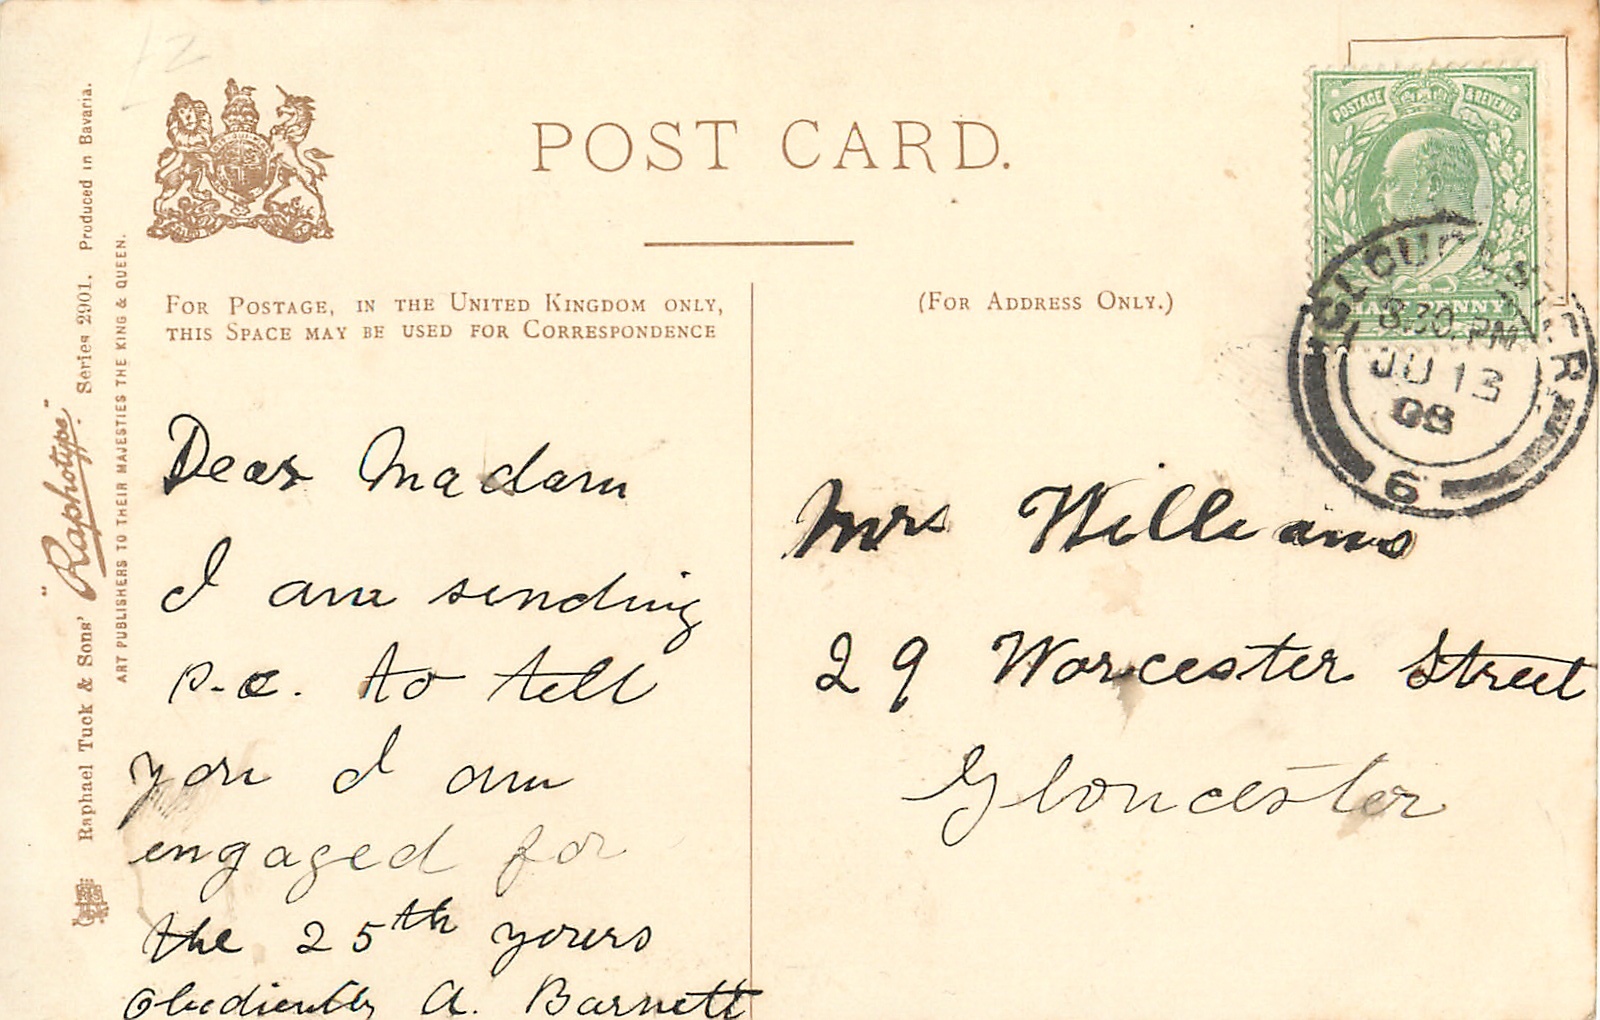 POST CARD.
FOR POSTAGE, IN THE UNITED KINGDOM ONLY,
THIS SPACE MAY BE USED FOR CORRESPONDENCE
(FOR ADDRESS ONLY.)
POSTAGE & REVENUE
HALFPENNY
GLOUCESTER
8.30 PM
JU 13
08
6
Dear Madam
I am sending
p.c. to tell
you I am
engaged for
the 25th yours
Obediently A. Barnett
Mrs Williams
29 Worcester Street
Gloucester
Raphael Tuck & Sons' "Raphotype" Series 2901. Produced in Bavaria.
ART PUBLISHERS TO THEIR MAJESTIES THE KING & QUEEN.